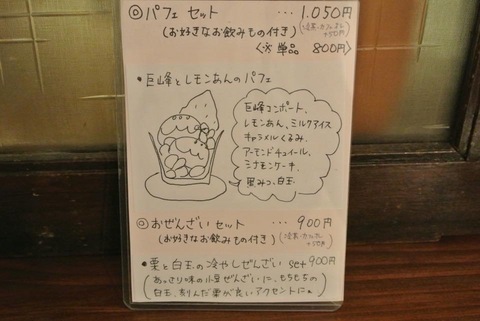 ◎ パフェ セット ··· 1,050円
(お好きなお飲みもの付き)
+50円
〈※単品 800円〉
・巨峰とレモンあんのパフェ
巨峰コンポート、
レモンあん、ミルクアイス
キャラメルくるみ、
アーモンドチュイール、
シナモンケーキ、
黒みつ、白玉
◎ おぜんざいセット ··· 900円
(お好きなお飲みもの付き)
+50円
・栗と白玉の冷やしぜんざい set 900円
(あっさり味の小豆ぜんざいに、もちもちの
白玉、刻んだ栗が良いアクセントに。